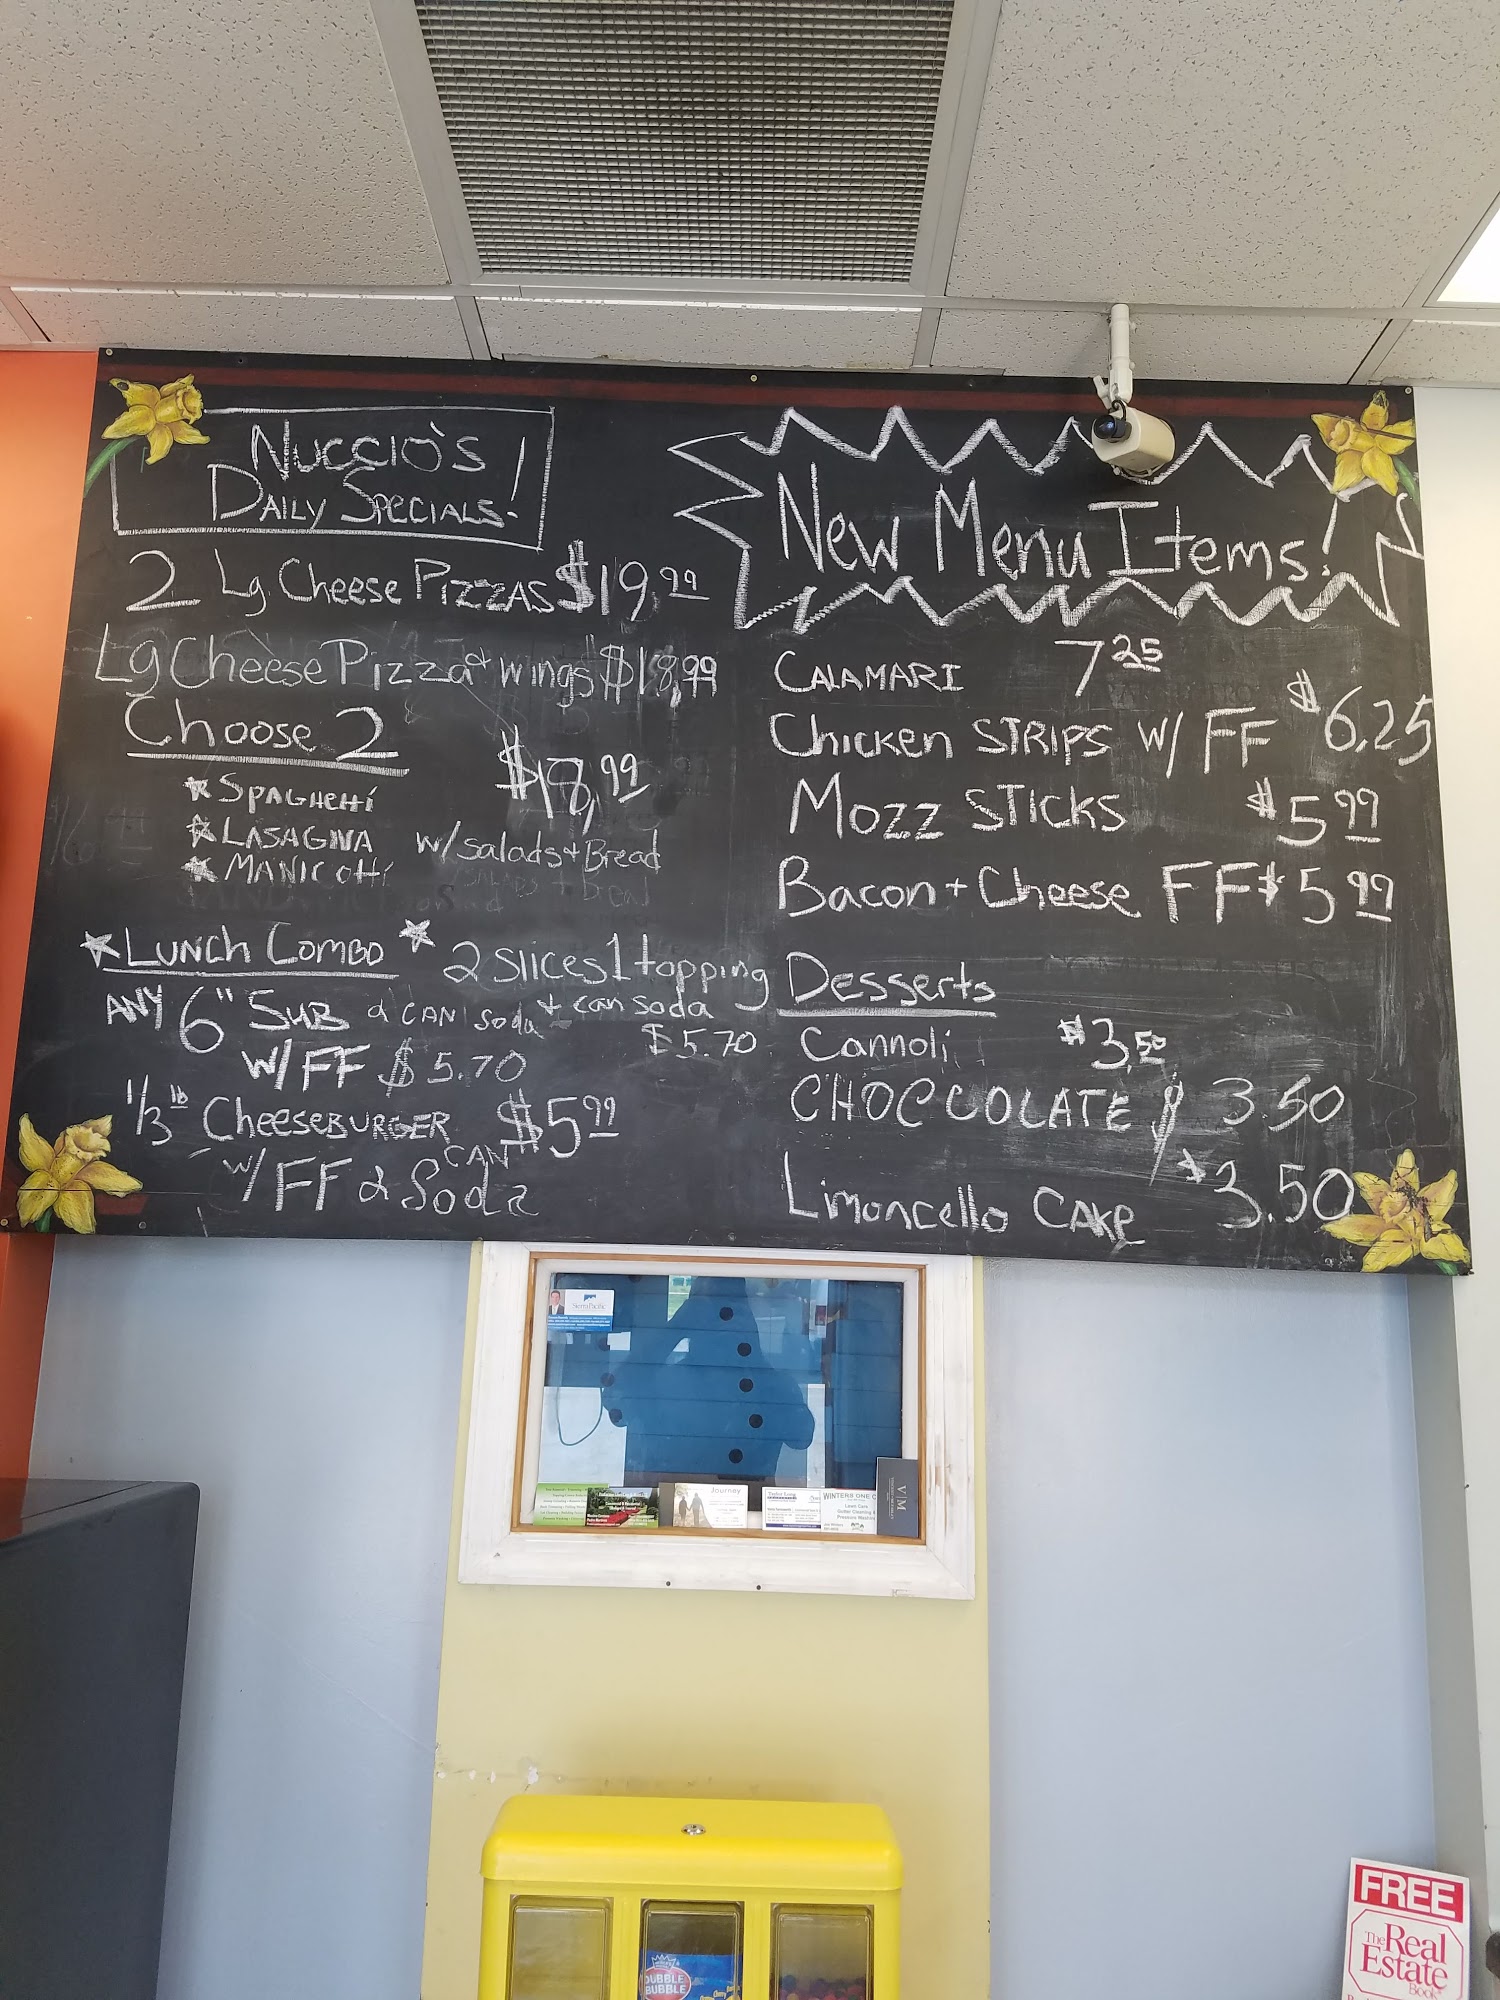 Nuccio's
Daily Specials!
2 Lg Cheese Pizzas $19.99
Lg Cheese Pizza & wings $18.99
Choose 2
$18.99
★ Spaghetti
★ Lasagna
★ Manicotti
w/salads + Bread
★ Lunch Combo ★
ANY 6" Sub & CAN soda
w/FF $5.70
2 slices 1 topping
+ can soda
$5.70
1/3 lb Cheeseburger $5.99
w/FF & CAN Soda
New Menu Items!
Calamari 7.25
Chicken STRIPS w/ FF $6.25
Mozz STICKS $5.99
Bacon + Cheese FF $5.99
Desserts
Cannoli $3.50
CHOCCOLATE $ 3.50
Limoncello CAKe $3.50
Sierra Pacific
Journey
WINTERS ONE C
Lawn Care
Gutter Cleaning &
Pressure Washing
VM
DUBBLE
BUBBLE
FREE
The Real
Estate
Book